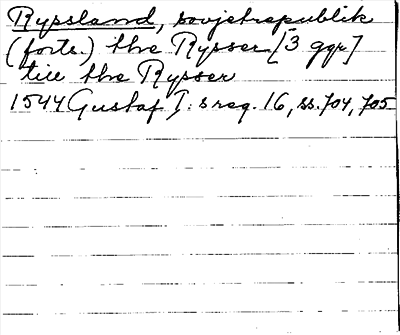 Ryssland, sovjetrepublik
(forts.) the Rysser [3 ggr]
till the Rysser
1544 Gustaf I: s reg. 16, ss. 704, 705